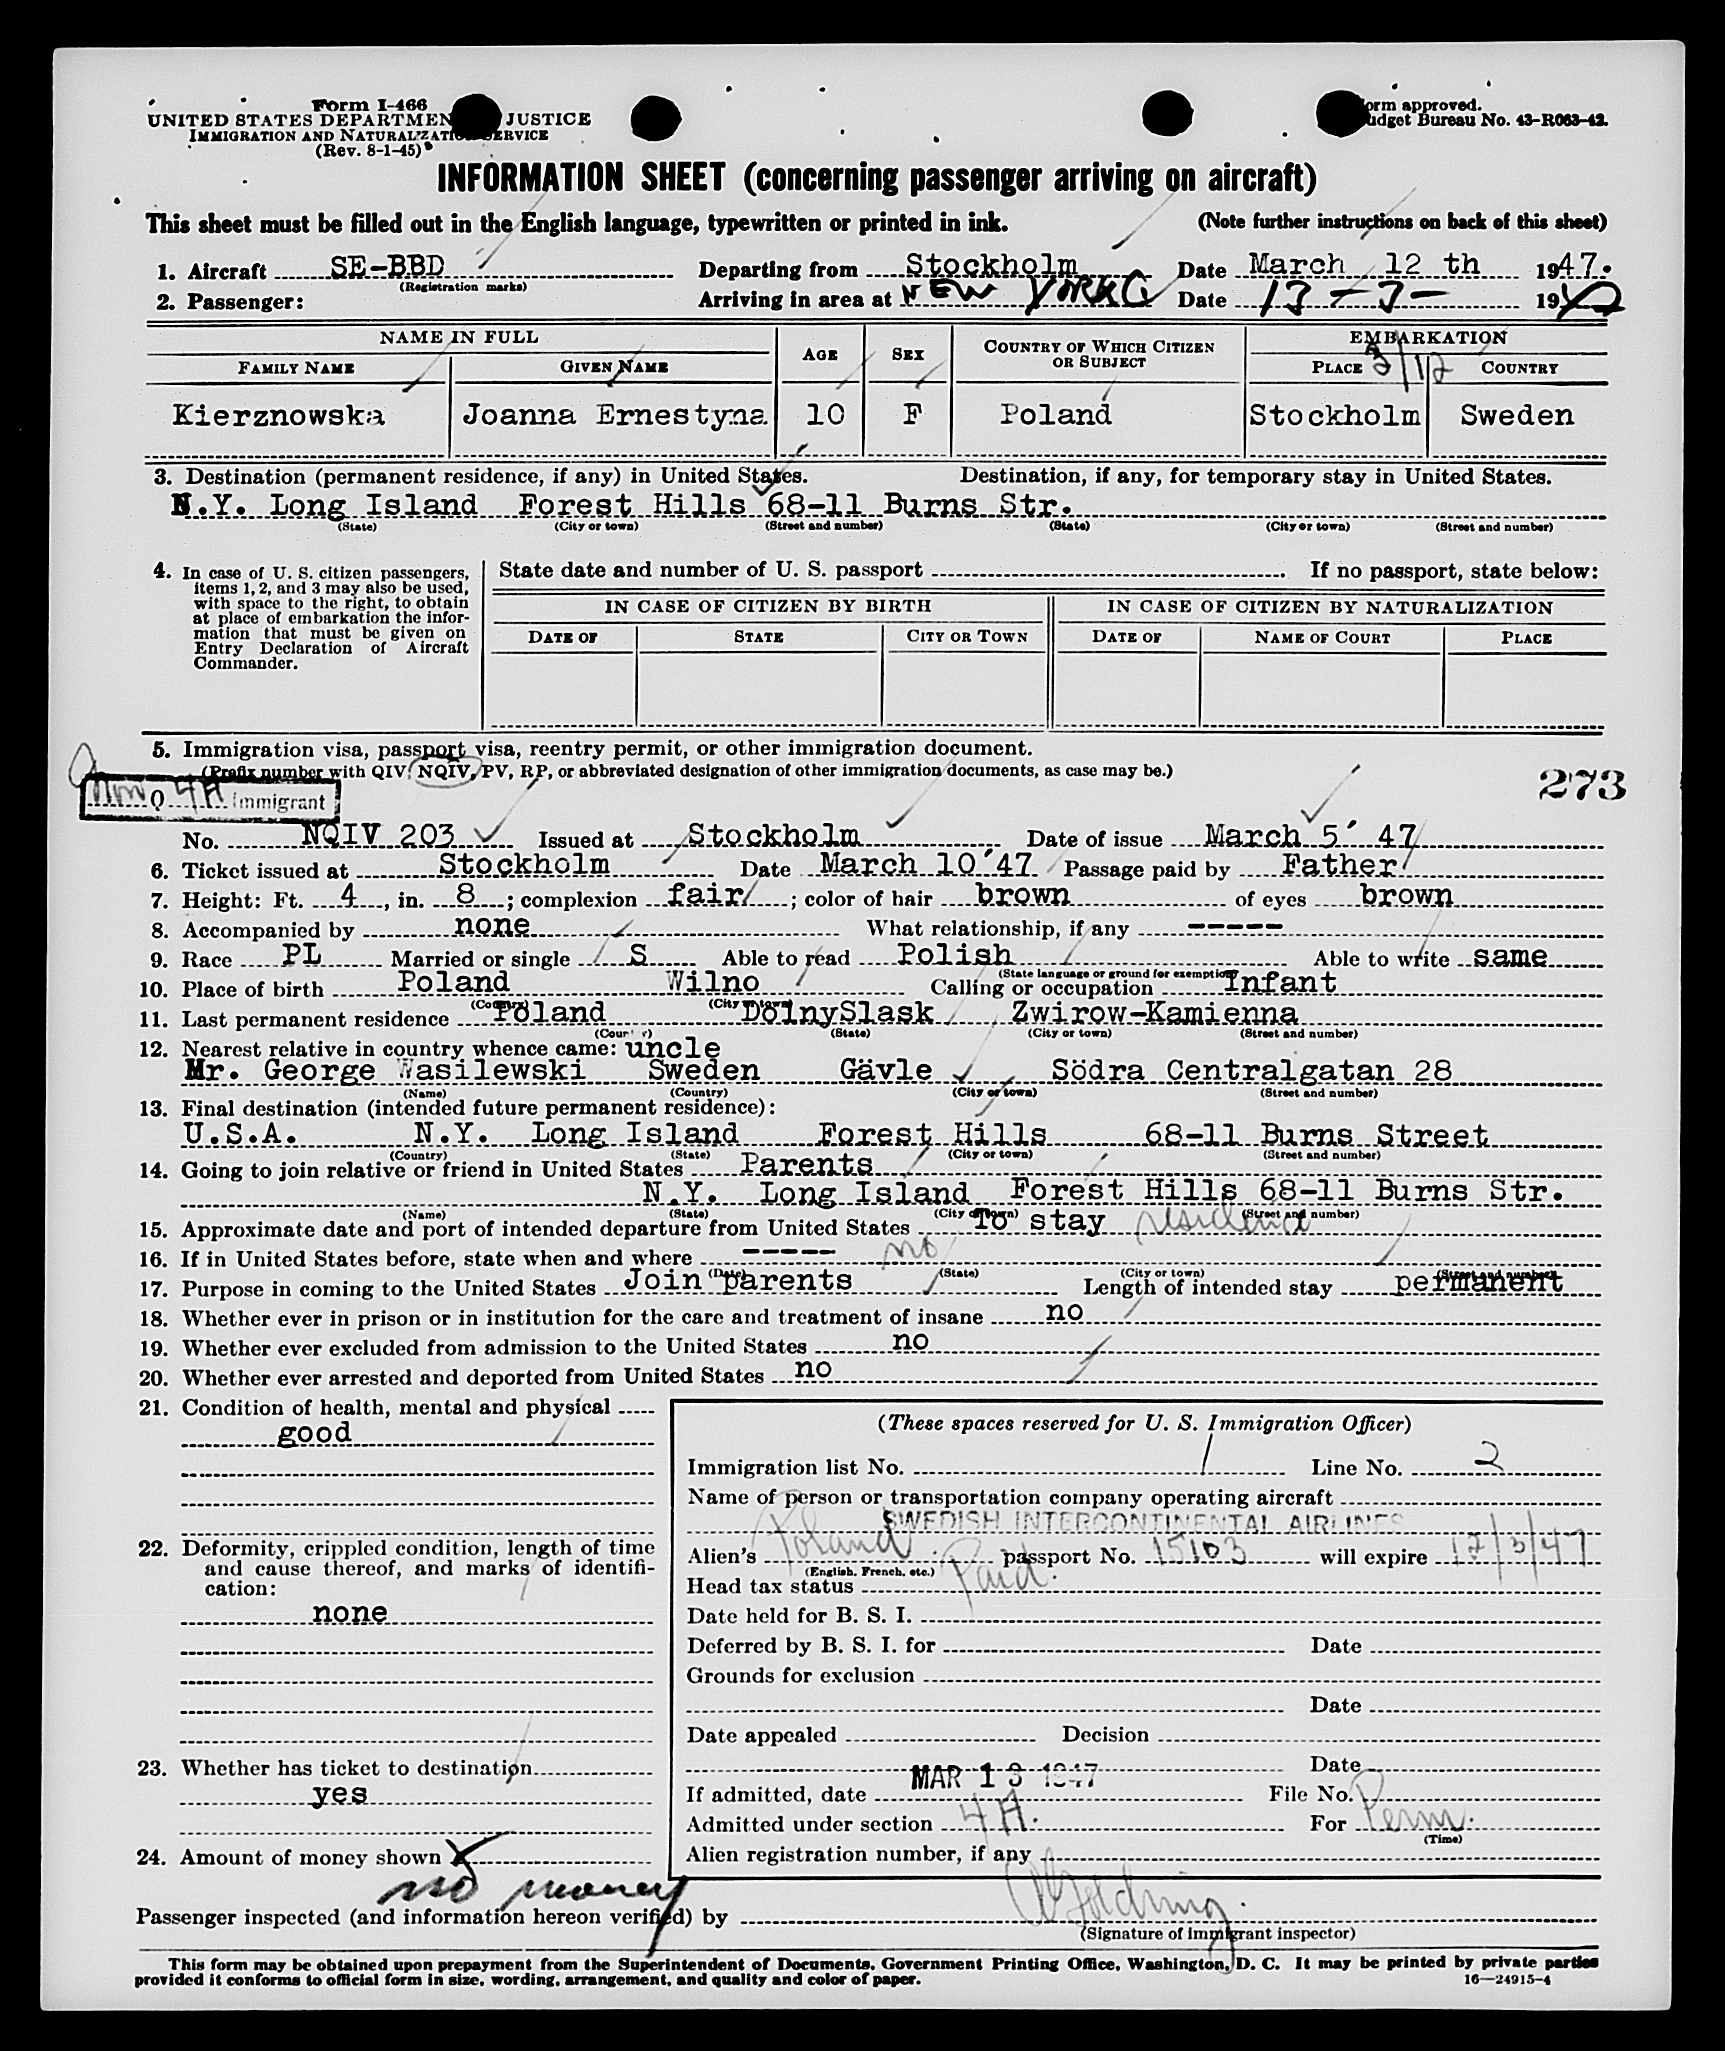 Form I-466
UNITED STATES DEPARTMENT JUSTICE
IMMIGRATION AND NATURALIZATION SERVICE
(Rev. 8-1-45)
Form approved.
Budget Bureau No. 43-R063-42.
INFORMATION SHEET (concerning passenger arriving on aircraft)
This sheet must be filled out in the English language, typewritten or printed in ink. (Note further instructions on back of this sheet)
1. Aircraft SE-BBD Departing from Stockholm Date March 12 th 1947.
(Registration marks)
2. Passenger: Arriving in area at NEW YORK Date 13-3- 1947
NAME IN FULL AGE SEX COUNTRY OF WHICH CITIZEN OR SUBJECT EMBARKATION
FAMILY NAME GIVEN NAME PLACE 3/12 COUNTRY
Kierznowska Joanna Ernestyna 10 F Poland Stockholm Sweden
3. Destination (permanent residence, if any) in United States. Destination, if any, for temporary stay in United States.
N.Y. Long Island Forest Hills 68-11 Burns Str.
(State) (City or town) (Street and number) (State) (City or town) (Street and number)
4. In case of U. S. citizen passengers, items 1, 2, and 3 may also be used, with space to the right, to obtain at place of embarkation the information that must be given on Entry Declaration of Aircraft Commander.
State date and number of U. S. passport If no passport, state below:
IN CASE OF CITIZEN BY BIRTH IN CASE OF CITIZEN BY NATURALIZATION
DATE OF STATE CITY OR TOWN DATE OF NAME OF COURT PLACE
5. Immigration visa, passport visa, reentry permit, or other immigration document.
(Prefix number with QIV, NQIV, PV, RP, or abbreviated designation of other immigration documents, as case may be.)
Non Q 4A Immigrant
273
No. NQIV 203 Issued at Stockholm Date of issue March 5' 47
6. Ticket issued at Stockholm Date March 10'47 Passage paid by Father
7. Height: Ft. 4, in. 8; complexion fair; color of hair brown of eyes brown
8. Accompanied by none What relationship, if any -----
9. Race PL Married or single S Able to read Polish Able to write same
(State language or ground for exemption)
10. Place of birth Poland Wilno Calling or occupation Infant
(Country) (City or town)
11. Last permanent residence Poland DolnySlask Zwirow-Kamienna
(Country) (State) (City or town) (Street and number)
12. Nearest relative in country whence came: uncle
Mr. George Wasilewski Sweden Gävle Södra Centralgatan 28
(Name) (Country) (City or town) (Street and number)
13. Final destination (intended future permanent residence):
U.S.A. N.Y. Long Island Forest Hills 68-11 Burns Street
(Country) (State) (City or town) (Street and number)
14. Going to join relative or friend in United States Parents
N.Y. Long Island Forest Hills 68-11 Burns Str.
(Name) (State) (City or town) (Street and number)
15. Approximate date and port of intended departure from United States To stay
16. If in United States before, state when and where ----- no
(Date) (State) (City or town) (Street and number)
17. Purpose in coming to the United States Join parents Length of intended stay permanent
18. Whether ever in prison or in institution for the care and treatment of insane no
19. Whether ever excluded from admission to the United States no
20. Whether ever arrested and deported from United States no
21. Condition of health, mental and physical
good
22. Deformity, crippled condition, length of time and cause thereof, and marks of identification:
none
23. Whether has ticket to destination
yes
24. Amount of money shown
no money
(These spaces reserved for U. S. Immigration Officer)
Immigration list No. 1 Line No. 2
Name of person or transportation company operating aircraft
SWEDISH INTERCONTINENTAL AIRLINES
Alien's Poland passport No. 15103 will expire 17/3/47
(English, French, etc.)
Head tax status Paid.
Date held for B. S. I.
Deferred by B. S. I. for Date
Grounds for exclusion
Date
Date appealed Decision
Date
If admitted, date MAR 13 1947 File No.
Admitted under section 4A. For Perm.
(Time)
Alien registration number, if any
Passenger inspected (and information hereon verified) by
(Signature of immigrant inspector)
This form may be obtained upon prepayment from the Superintendent of Documents, Government Printing Office, Washington, D. C. It may be printed by private parties
provided it conforms to official form in size, wording, arrangement, and quality and color of paper. 16-24915-4